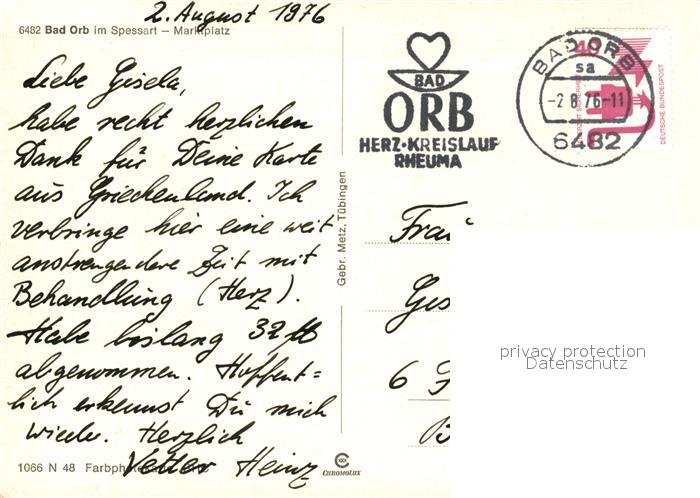 2. August 1976
6482 Bad Orb im Spessart – Marktplatz
Liebe Gisela,
habe recht herzlichen
Dank für Deine Karte
aus Griechenland. Ich
verbringe hier eine weit
anstrengendere Zeit mit
Behandlung (Herz).
Habe bislang 32 ℔
abgenommen. Hoffent=
lich erkennst Du mich
wieder. Herzlich
Vetter Heinz
1066 N 48
Gebr. Metz, Tübingen
CHROMOLUX
BAD
ORB
HERZ·KREISLAUF
RHEUMA
BAD ORB
sa
-2.8.76-11
6482
40
DEUTSCHE BUNDESPOST
Frau
Gis
6
privacy protection
Datenschutz